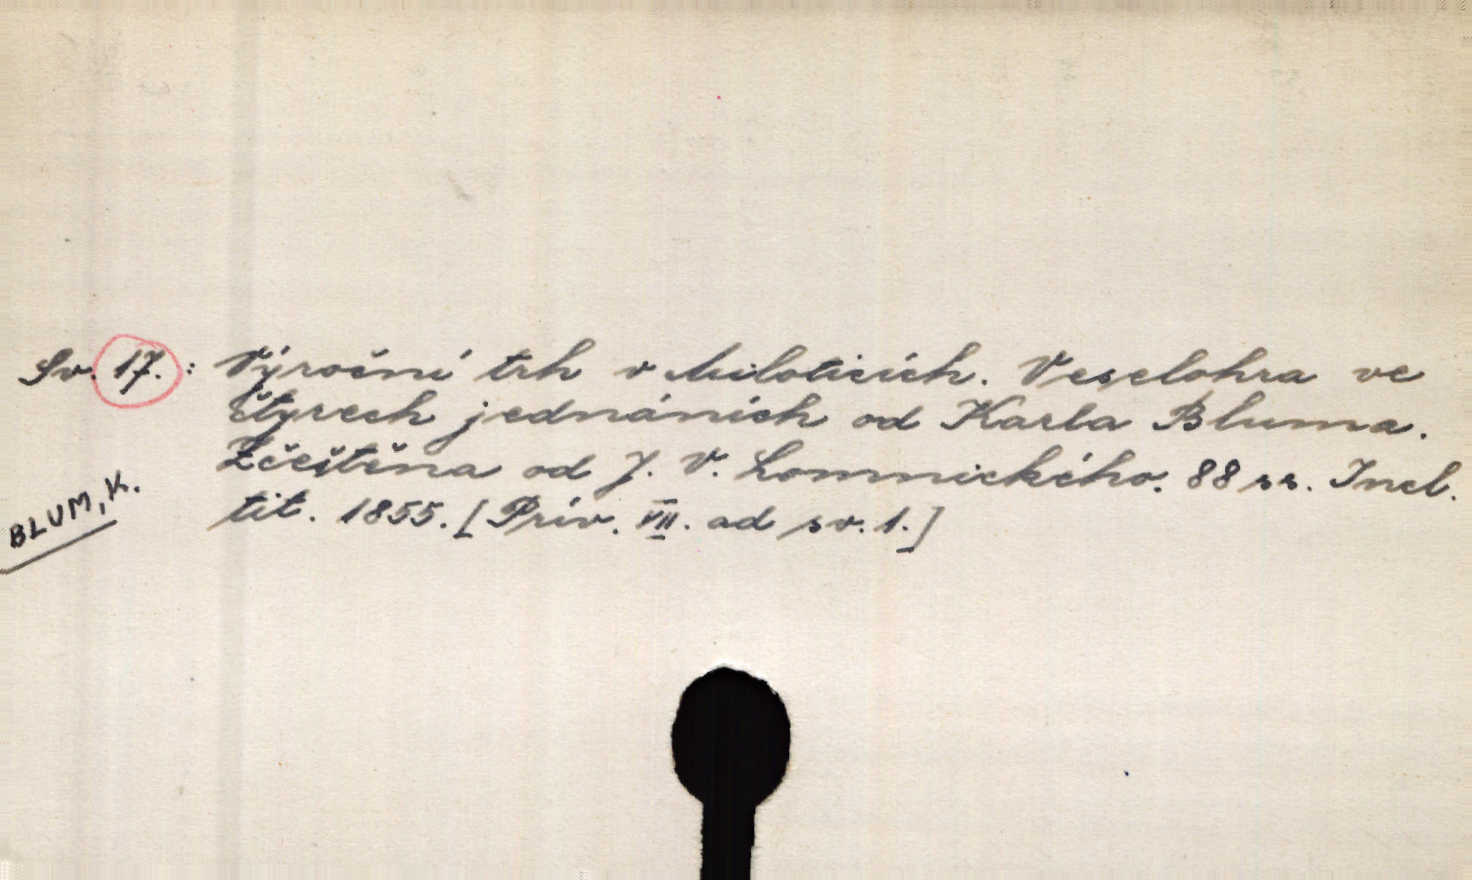 Sv. 17. : Výroční trh v Miloticích. Veselohra ve
čtyrech jednáních od Karla Bluma.
Zčeština od J. V. Lomnického. 88 ss. Incl.
tit. 1855. [Přív. VII. ad sv. 1.]
BLUM, K.